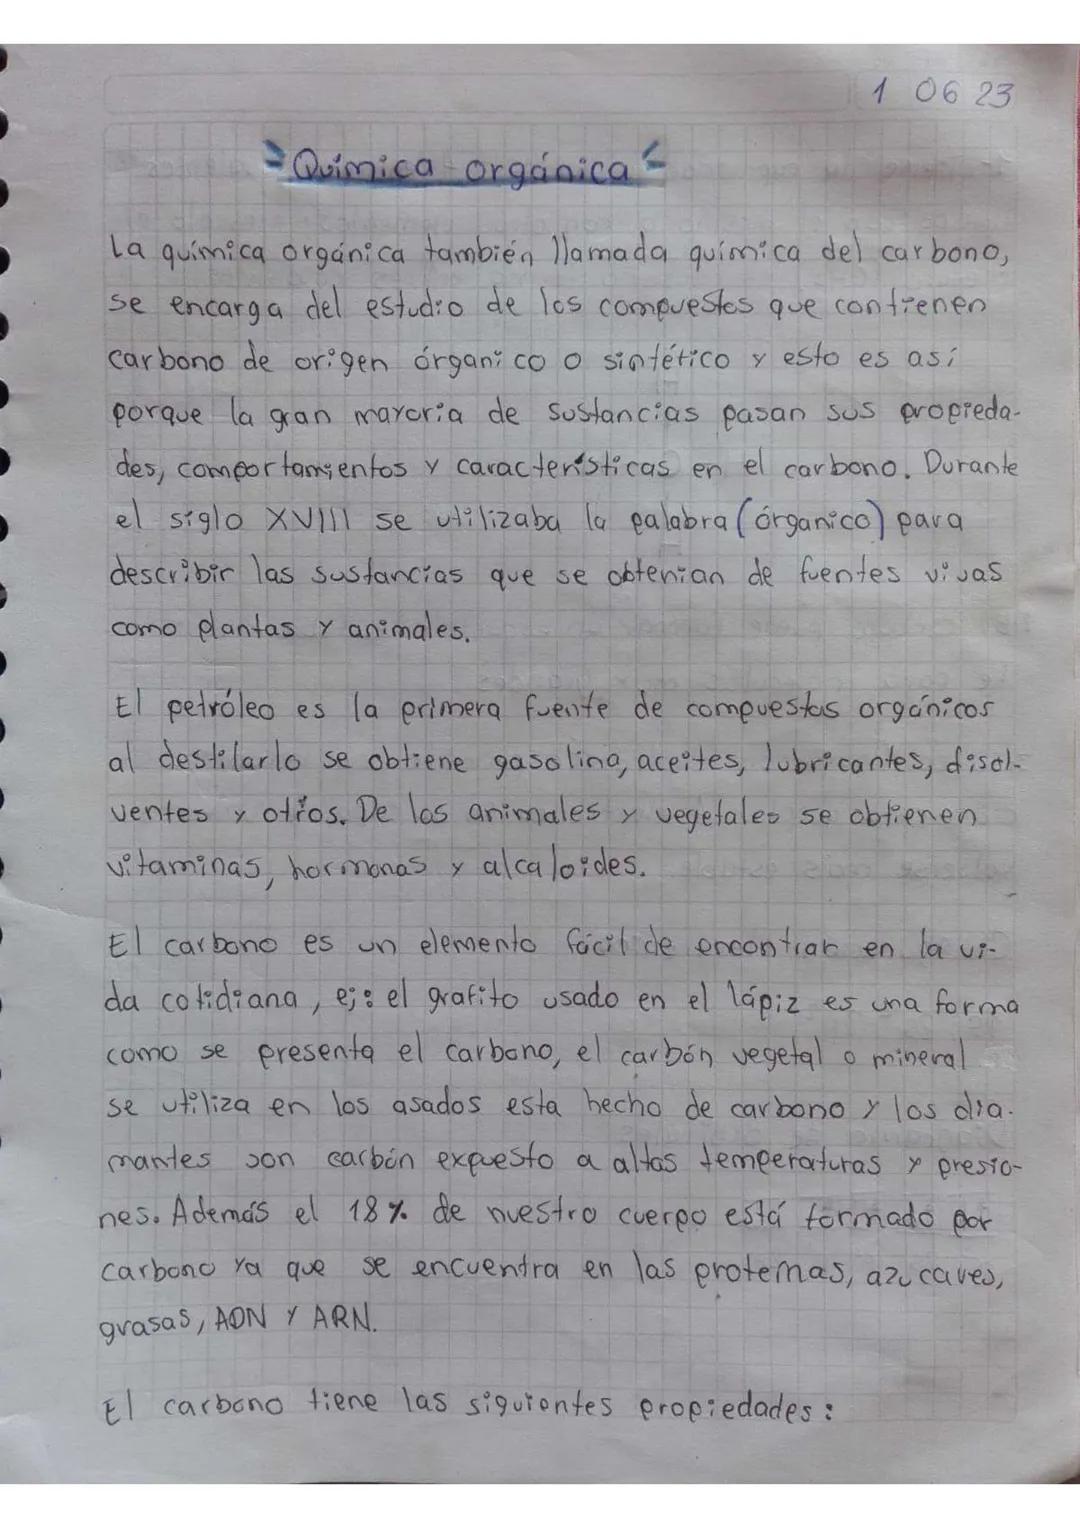 1 06 23
Química orgánica
La química orgánica también llamada química del carbono,
se encarga del estudio de los compuestos que contienen
carbono de origen órganico o sintético y esto es así
porque la gran mayoría de sustancias pasan sus propieda-
des, comportamientos y características en el carbono. Durante
el siglo XVIII se utilizaba la palabra (órganico) para
describir las sustancias que se obtenian de fuentes vivas
como plantas y animales.
El petróleo es la primera fuente de compuestos orgánicos
al destilarlo se obtiene gasolina, aceites, lubricantes, disol-
ventes y otros. De los animales y vegetales se obtienen
vitaminas, hormonas y alcaloides.
El carbono es un elemento fácil de encontrar en la vi-
da cotidiana, ej: el grafito usado en el lápiz es una forma
como se presenta el carbono, el carbón vegetal o mineral
se utiliza en los asados esta hecho de carbono y los dia-
mantes son carbón expuesto a altas temperaturas y presio-
nes. Además el 18% de nuestro cuerpo está formado por
carbono ya que se encuentra en las proteínas, azucares,
grasas, ADN Y ARN.
El carbono tiene las siguientes propiedades: